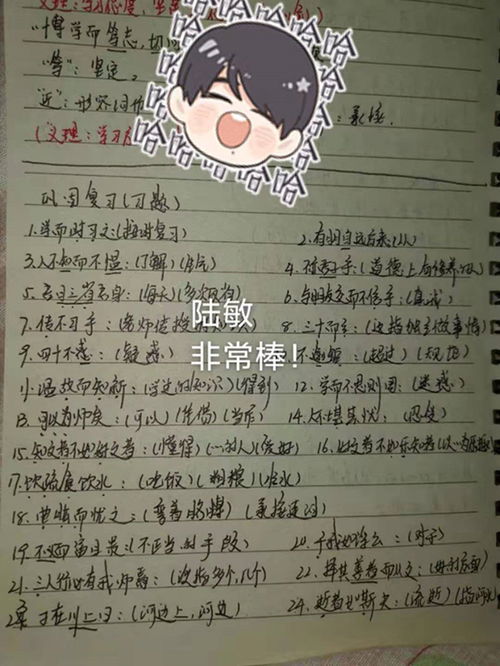 "博学而笃志,切
"笃":坚定。
(文理:学习
巩固复习(习题)
1.学而时习之(按时复习)
2.有朋自远方来(从)
3.人不知而不愠:(了解)(生气)
4.君子乎:(道德上有修养的人)
5.吾日三省吾身:(每天)(多次反省)
6.与朋友交而不信乎:(真诚)
7.传不习乎:(老师传授
8.三十而立:(这指能立做事情)
9.四十不惑:(疑惑)
不逾矩:(超过)(规矩)
11.温故而知新:(学过的知识)(得到)
12.学而不思则罔:(迷惑)
13.可以为师矣:(可以)(凭借)(当作)
14.人不堪其忧:(忍受)
15.知之者不如好之者:(懂得)(……的人)(爱好)
16.好之者不如乐之者(以……为乐趣)
17.饭疏食饮水:(吃饭)(粗粮)(冷水)
18.曲肱而枕之:(弯着胳膊)
19.不义而富且贵:(不正当的手段)
20.于我如浮云:(对于)
21.三人行必有我师焉:(这指多个,几个)
22.择其善者而从之:
23.子在川上曰:(河边上,河边)
24.逝者如斯夫:(流逝)(指河水)
哈哈哈哈哈哈哈哈哈哈哈哈哈哈
陆敏
非常棒!